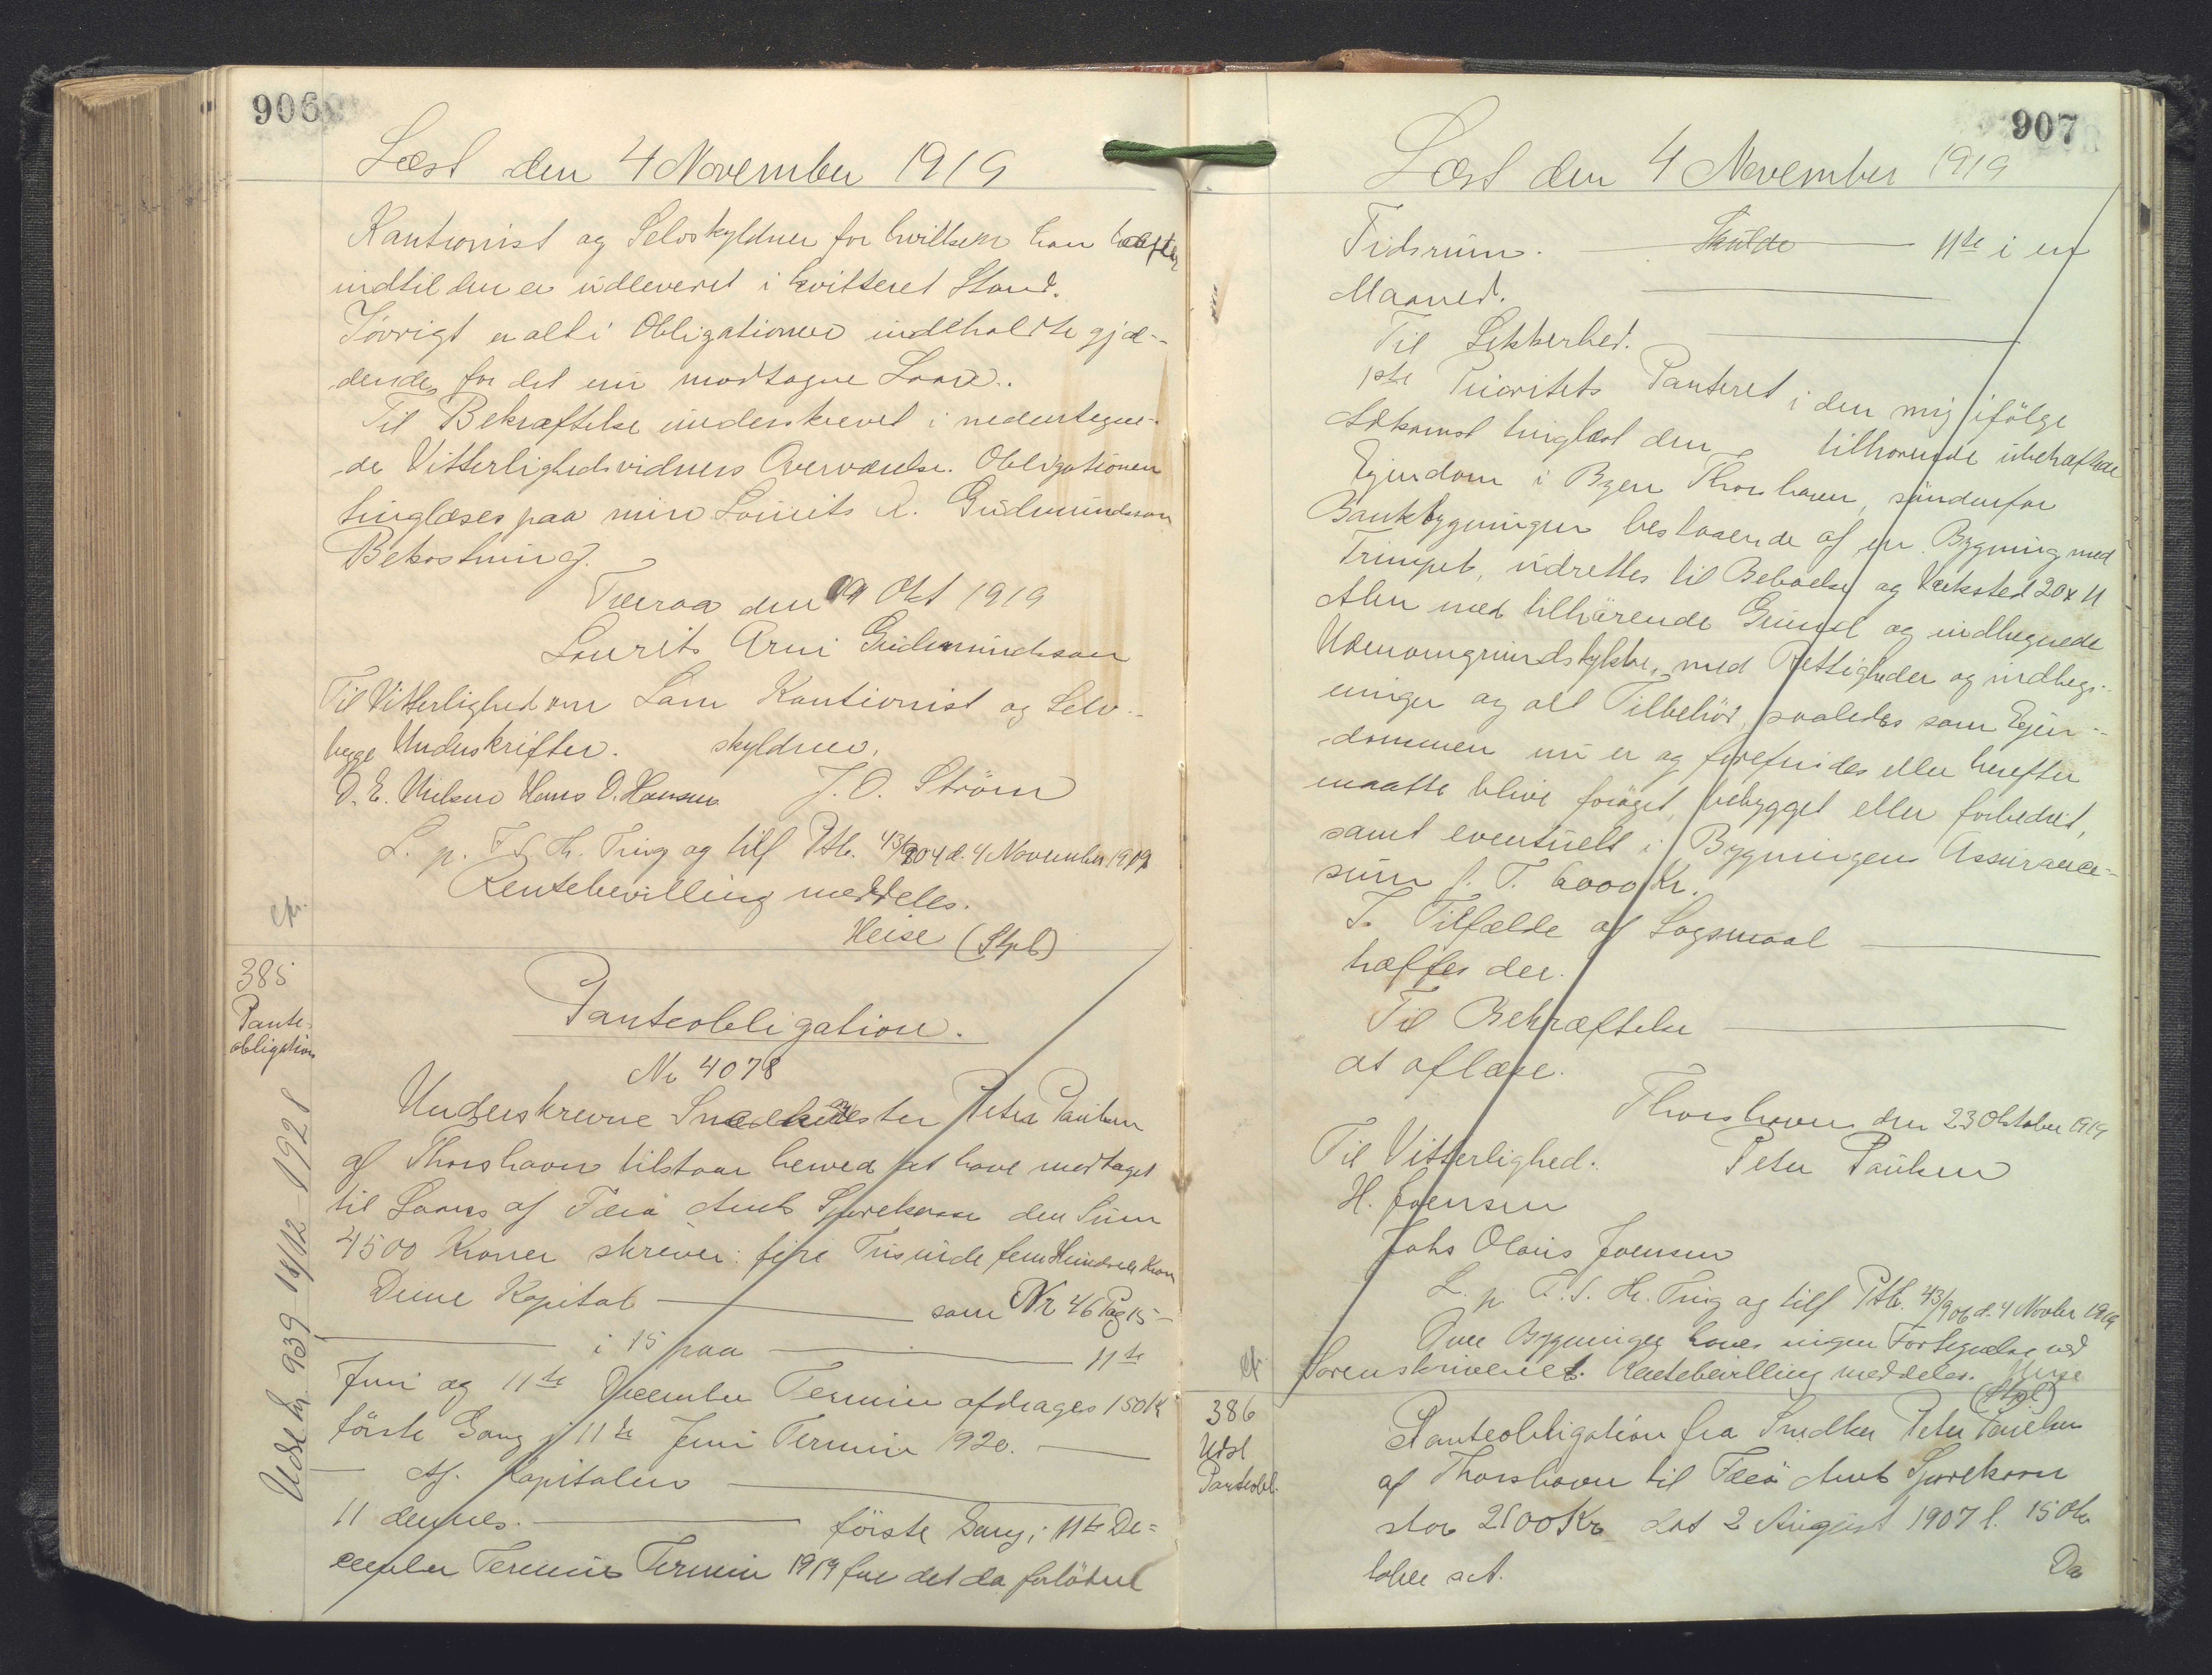 906
Læst den 4 November 1919
Kautionist og Selvskyldner for hvilken han hæfter
indtil den er udleveret i kvitteret Stand.
Iøvrigt er alt i Obligationen indeholdte gjæ-
dende for det nu modtagne Laan.
Til Bekræftelse underskrevet i nedentegne-
de Vitterlighedsvidners Overværelse. Obligationen
tinglæses paa min Lourits A. Gudmundsson
Bekostning.
Tveraa den Okt 1919
Lourits Arni Gudmundsson
Til Vitterlighed om Som Kautionist og Selv-
begge Underskrifter. skyldner.
D. E. Nielsen Hans D. Hansen J. O. Ström
L. p. F. S. Hr. Ting og tilf Ptb. 43/904 d. 4 November 1919
Rentebevilling meddeles.
cfr.
Heise (Stpl)
385
Pante-
obligation
Udsl hr 939 18/12 1928
Panteobligation.
Nr 4078
Underskrevne Snedkermester Peter Paulsen
af Thorshavn tilstaar herved at have modtaget
til Laans af Færø Amts Sparekasse den Sum
4500 Kroner skriver: fire Tusinde fem Hundrede Kron
Denne Kapital som Nr 46 Pag 15
i 15 paa 11te
Juni og 11te December Termin afdrages 150 Kr
første Gang i 11te Juni Termin 1920.
Af Kapitalen
11 dennes. første Gang i 11te De=
cember Termins Termin 1919 for det da forløbne
907
Læst den 4 November 1919
Tidsrum. Skulde 11te i en
Maaned.
Til Sikkerhed.
1ste Prioritets Panteret i den mig ifölge
Adkomst tinglæst den tilhørende ubehæftede
Ejendom i Byen Thorshavn, söndenfor
Bankbygningen bestaaende af en Bygning med
Trimpel, indrettes til Beboelse og Værksted 20 x 11
Alen med tilhörende Grund og indhegnede
Udenomgrundstykke, med Rettigheder og indheg-
ninger og alt Tilbehör, saaledes som Ejen-
dommen nu er og forefindes eller herefter
maatte blive foröget, bebygget eller forbedret,
samt eventuelt i Bygningens Assurance-
sum f. T. 6000 Kr.
I Tilfælde af Sogsmaal
hæftes der.
Til Bekræftelse
at aflæse.
Thorshavn den 23 Oktober 1919
Til Vitterlighed. Peter Paulsen
H. Joensen
Johs Olaus Joensen
L. p. F. S. Hr. Ting og tilf Ptb. 43/906 d. 4 Novbr 1919
Over Bygningen haves ingen Fortegnelse ved
cfr.
Sorenskriveriet. Rentebevilling meddeles. Heise
(Stpl)
386
Udsl
Panteobl.
Panteobligation fra Snedker Peter Paulsen
af Thorshavn til Færø Amts Sparekasse
stor 2500 Kr dat 2 August 1907 l. 15 Okt
Da